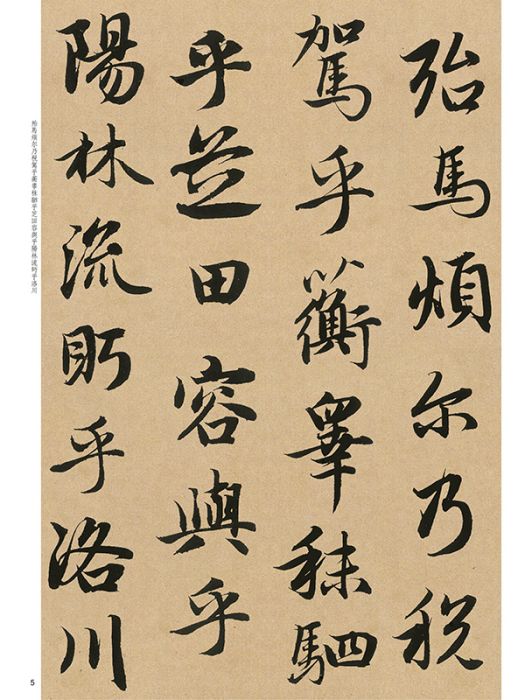 殆馬煩尔乃税
駕乎蘅皋秣駟
乎芝田容與乎
陽林流眄乎洛川
殆馬煩尔乃税駕乎蘅皋秣駟乎芝田容與乎陽林流眄乎洛川
5